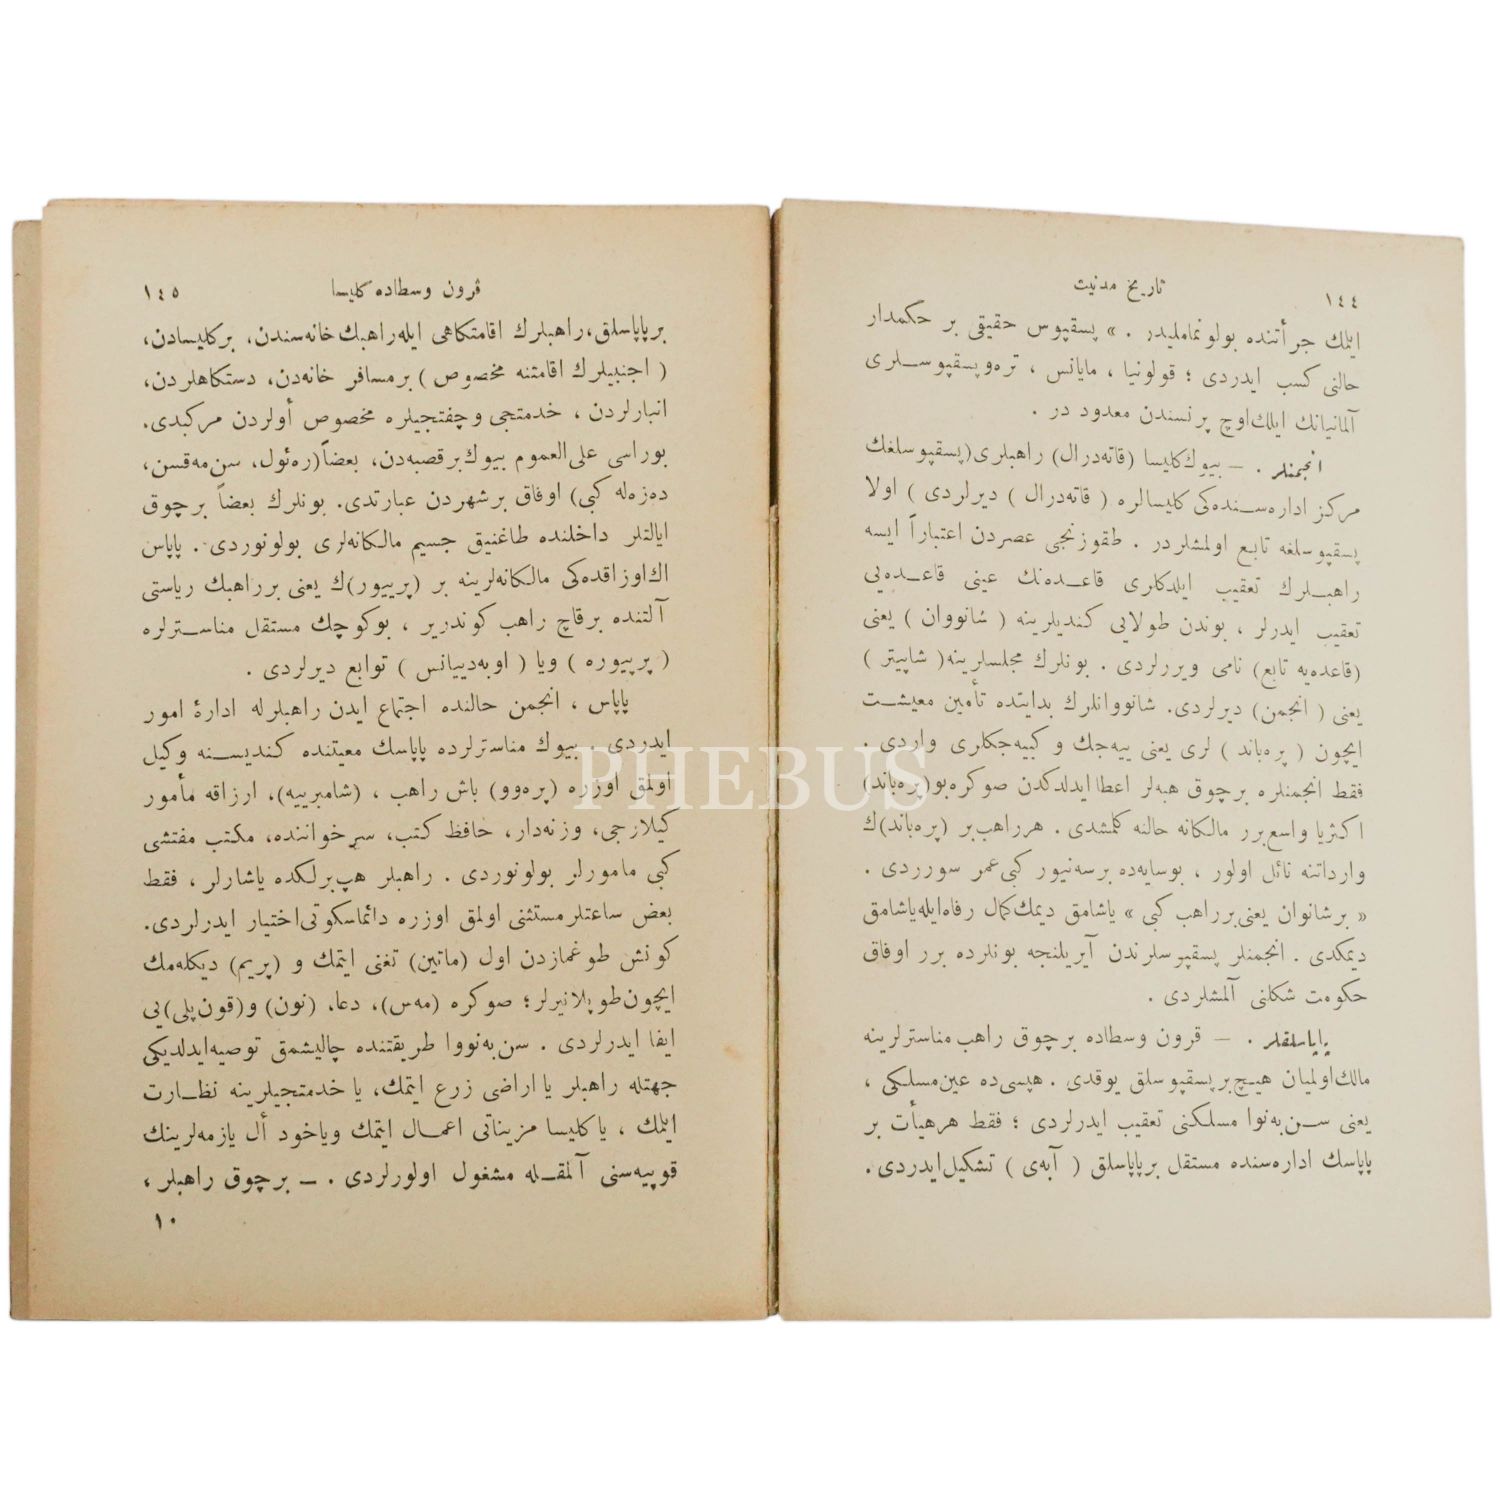 ١٤٤
تاریخ مدنیت
ایلك جرأتنده بولونماملیدر . » پسقپوس حقیقی بر حكمدار
حالنی كسب ایدردی ؛ قولونیا ، مایانس ، تره‌و پسقپوسلری
آلمانیانك ایلك اوچ پرنسندن معدود در .
انجمنلر . — بیوك كلیسا (قاته‌درال) راهبلری (پسقپوسلغك
مركز اداره‌سنده‌كی كلیسالره ( قاته‌درال ) دیرلردی ) اولا
پسقپوسلغه تابع اولمشلردر . طقوزنجی عصردن اعتباراً ایسه
راهبلرك تعقیب ایلدكاری قاعده‌نك عینی قاعده‌یی
تعقیب ایدرلر ، بوندن طولایی كندیلرینه ( شانووان ) یعنی
(قاعده‌یه تابع) نامی ویررلردی . بونلرك مجلسلرینه ( شاپیتر )
یعنی ( انجمن) دیرلردی. شانووانلرك بدایتده تأمین معیشت
ایچون ( پره‌باند ) لری یعنی ییه‌جك و كییه‌جكلری واردی .
فقط انجمنلره برچوق هبه‌لر اعطا ایدلدكدن صوكره بو (پره‌باند)
اكثریا واسع برر مالكانه حالنه كلمشدی . هر راهب بر (پره‌باند)ك
وارداتنه نائل اولور ، بوسایه‌ده برسه‌نیور كبی عمر سوردی .
« بر شانوان یعنی بر راهب كبی » یاشامق دیمك كمال رفاه ایله یاشامق
دیمكدی . انجمنلر پسقپوسلرندن آیریلنجه بونلرده برر اوفاق
حكومت شكلنی آلمشلردی .
پاپاسلقلر . — قرون وسطاده برچوق راهب مناسترلرینه
مالك اولمیان هیچ بر پسقپوسلق یوقدی . هپسی‌ده عین مسلكی ،
یعنی سن به‌نوا مسلكنی تعقیب ایدرلردی ؛ فقط هر هیأت بر
پاپاسك اداره‌سنده مستقل بر پاپاسلق ( آبه‌ی ) تشكیل ایدردی .
قرون وسطاده كلیسا
١٤٥
بر پاپاسلق، راهبلرك اقامتكاهی ایله راهبك خانه‌سندن، بر كلیسادن،
( اجنبیلرك اقامتنه مخصوص ) بر مسافر خانه‌دن، دستكاهلردن،
انبارلردن ، خدمتجی و چفتجیلره مخصوص أولردن مركبدی.
بوراسی علی‌العموم بیوك بر قصبه‌دن، بعضاً (ره‌ئول، سن مه‌قسن،
ده‌زه‌له كبی) اوفاق بر شهردن عبارتدی. بونلرك بعضاً برچوق
ایالتلر داخلنده طاغنیق جسیم مالكانه‌لری بولونوردی . پاپاس
اك اوزاقده‌كی مالكانه‌لرینه بر (پرییور)ك یعنی بر راهبك ریاستی
آلتنده برقاچ راهب كوندریر ، بوكوچك مستقل مناسترلره
( پرییوره ) ویا ( اوبه‌دییانس ) توابع دیرلردی .
پاپاس ، انجمن حالنده اجتماع ایدن راهبلرله ادارهٔ امور
ایدردی . بیوك مناسترلرده پاپاسك معیتنده كندیسنه وكیل
اولمق اوزره (پره‌وو) باش راهب ، (شامبرییه)، ارزاقه مأمور
كیلارجی، وزنه‌دار، حافظ كتب، سرخواننده، مكتب مفتشی
كبی مامورلر بولونوردی . راهبلر هپ برلكده یاشارلر ، فقط
بعض ساعتلر مستثنی اولمق اوزره دائما سكوتی اختیار ایدرلردی.
كونش طوغمازدن اول (ماتین) تغنی ایتمك و (پریم) دیكله‌مك
ایچون طوپلانیرلر؛ صوكره (مه‌س)، دعا، (نون) و(قون‌پلی)یی
ایفا ایدرلردی . سن به‌نووا طریقتنده چالیشمق توصیه ایدلدیكی
جهتله راهبلر یا اراضی زرع ایتمك، یا خدمتجیلرینه نظارت
ایلمك ، یا كلیسا مزیناتی اعمال ایتمك ویاخود أل یازمه‌لرینك
قوپیه‌سنی آلمقله مشغول اولورلردی . — برچوق راهبلر ،
١٠
PHEBUS